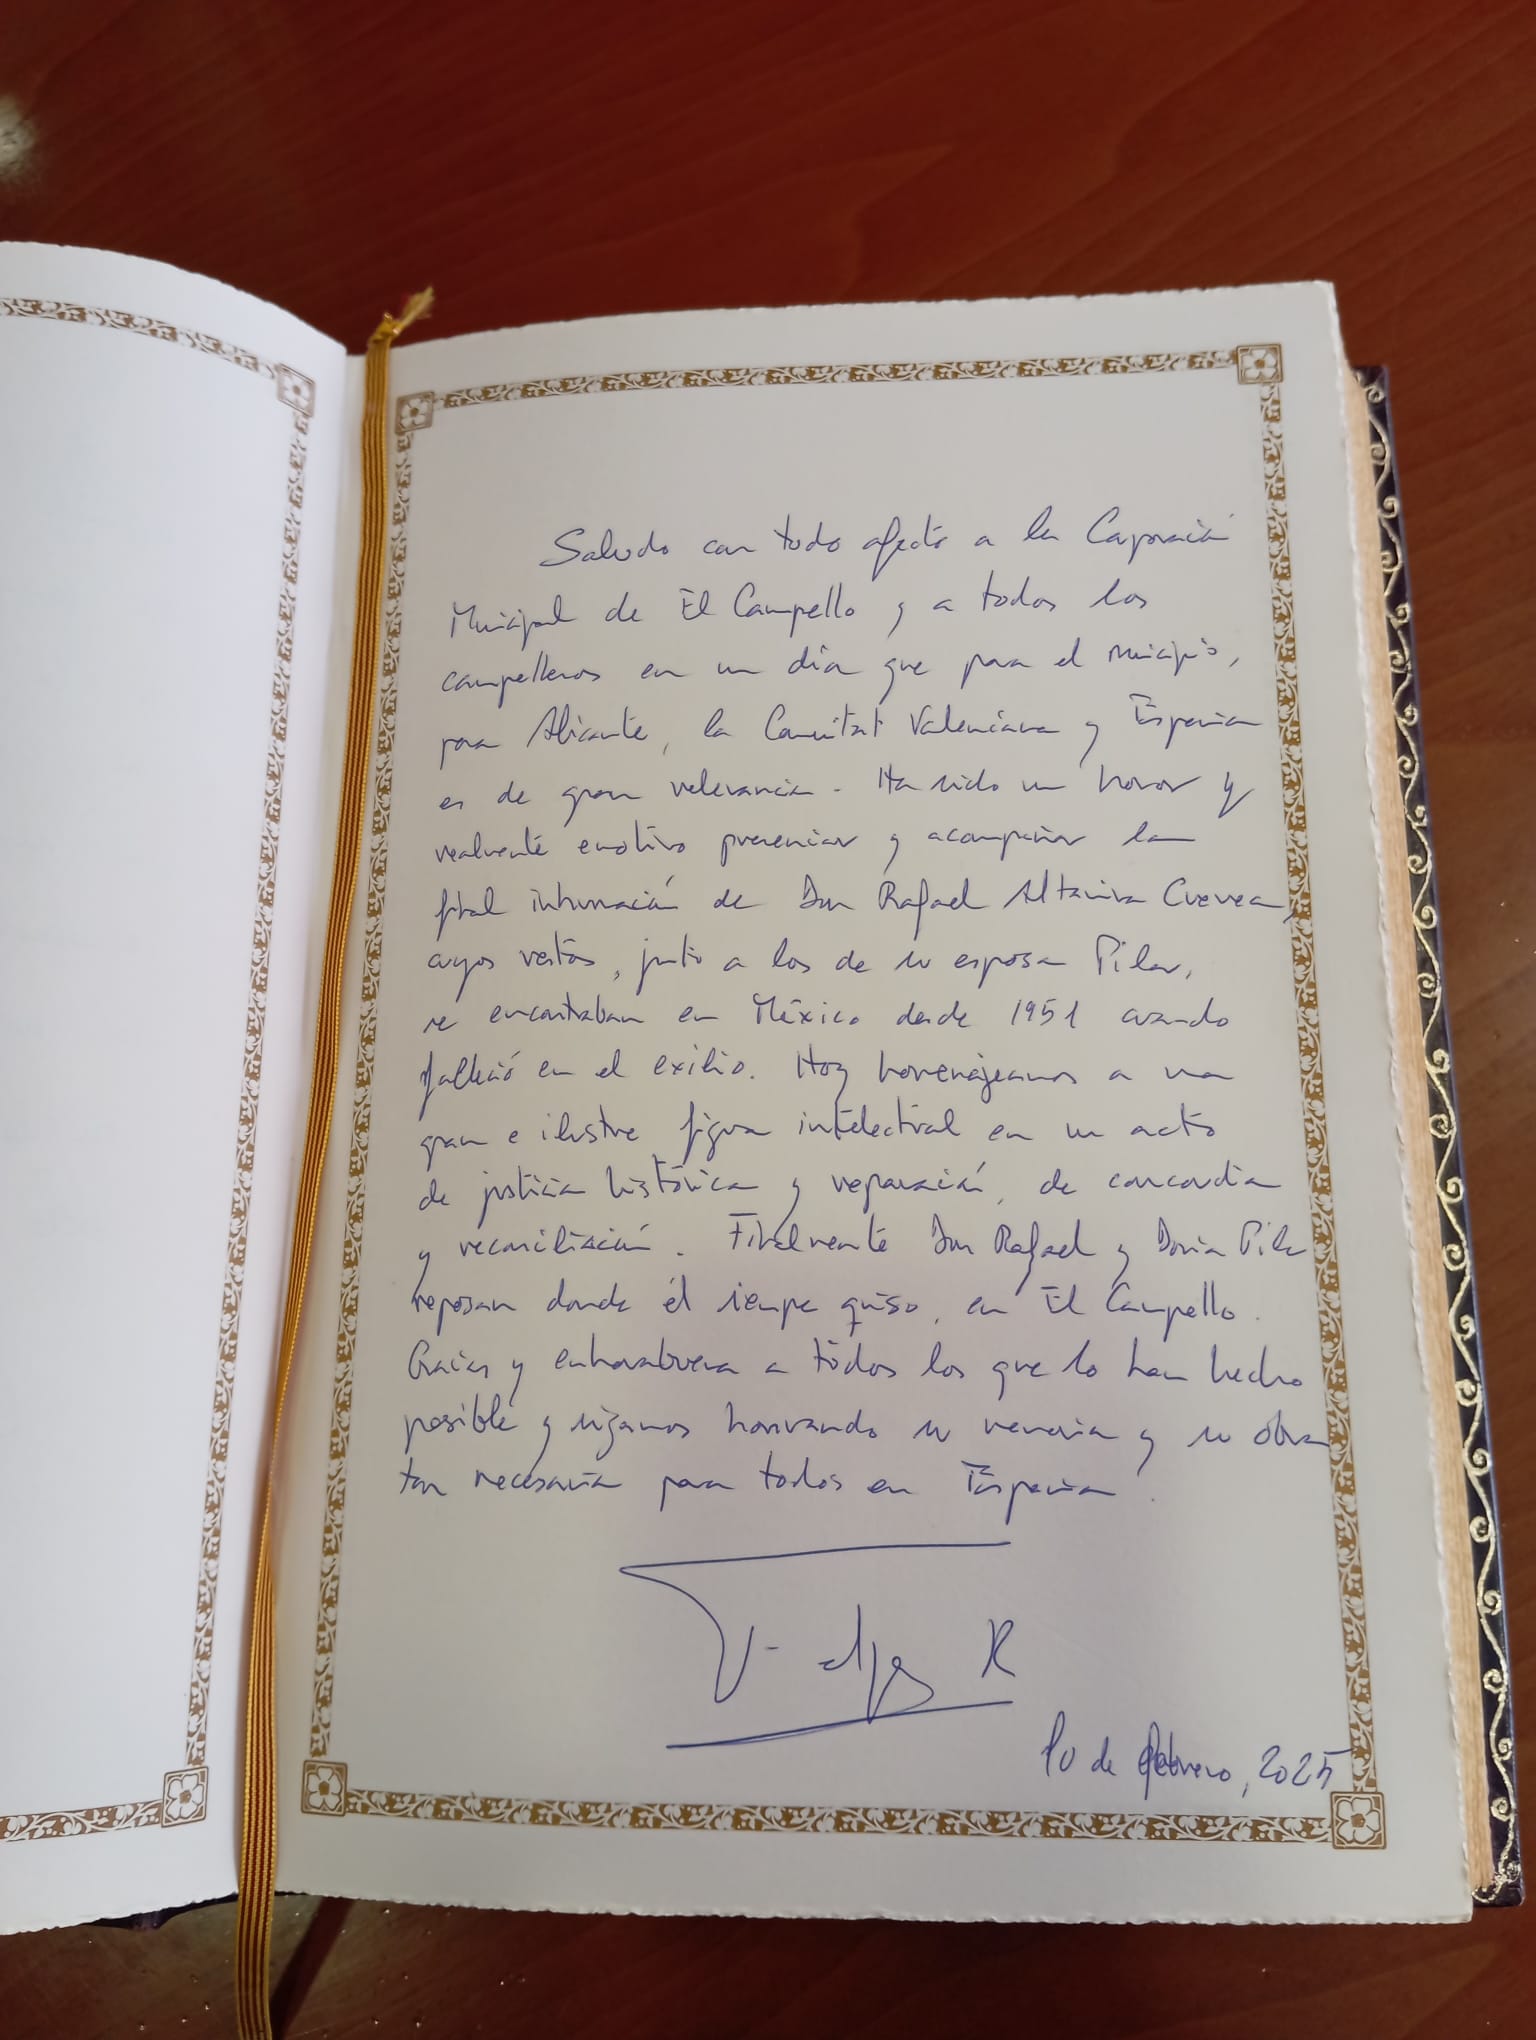 Saludo con todo afecto a la Corporación
Municipal de El Campello y a todos los
campelleros en un día que para el municipio,
para Alicante, la Comunitat Valenciana y España
es de gran relevancia. Ha sido un honor y
realmente emotivo presenciar y acompañar la
final inhumación de Don Rafael Altamira Crevea,
cuyos restos, junto a los de su esposa Pilar,
se encontraban en México desde 1951 cuando
falleció en el exilio. Hoy homenajeamos a una
gran e ilustre figura intelectual en un acto
de justicia histórica y reparación, de concordia
y reconciliación. Finalmente Don Rafael y Doña Pilar
reposan donde él siempre quiso, en El Campello.
Gracias y enhorabuena a todos los que lo han hecho
posible y sigamos honrando su memoria y su obra
tan necesaria para todos en España.
Felipe R
10 de febrero, 2025